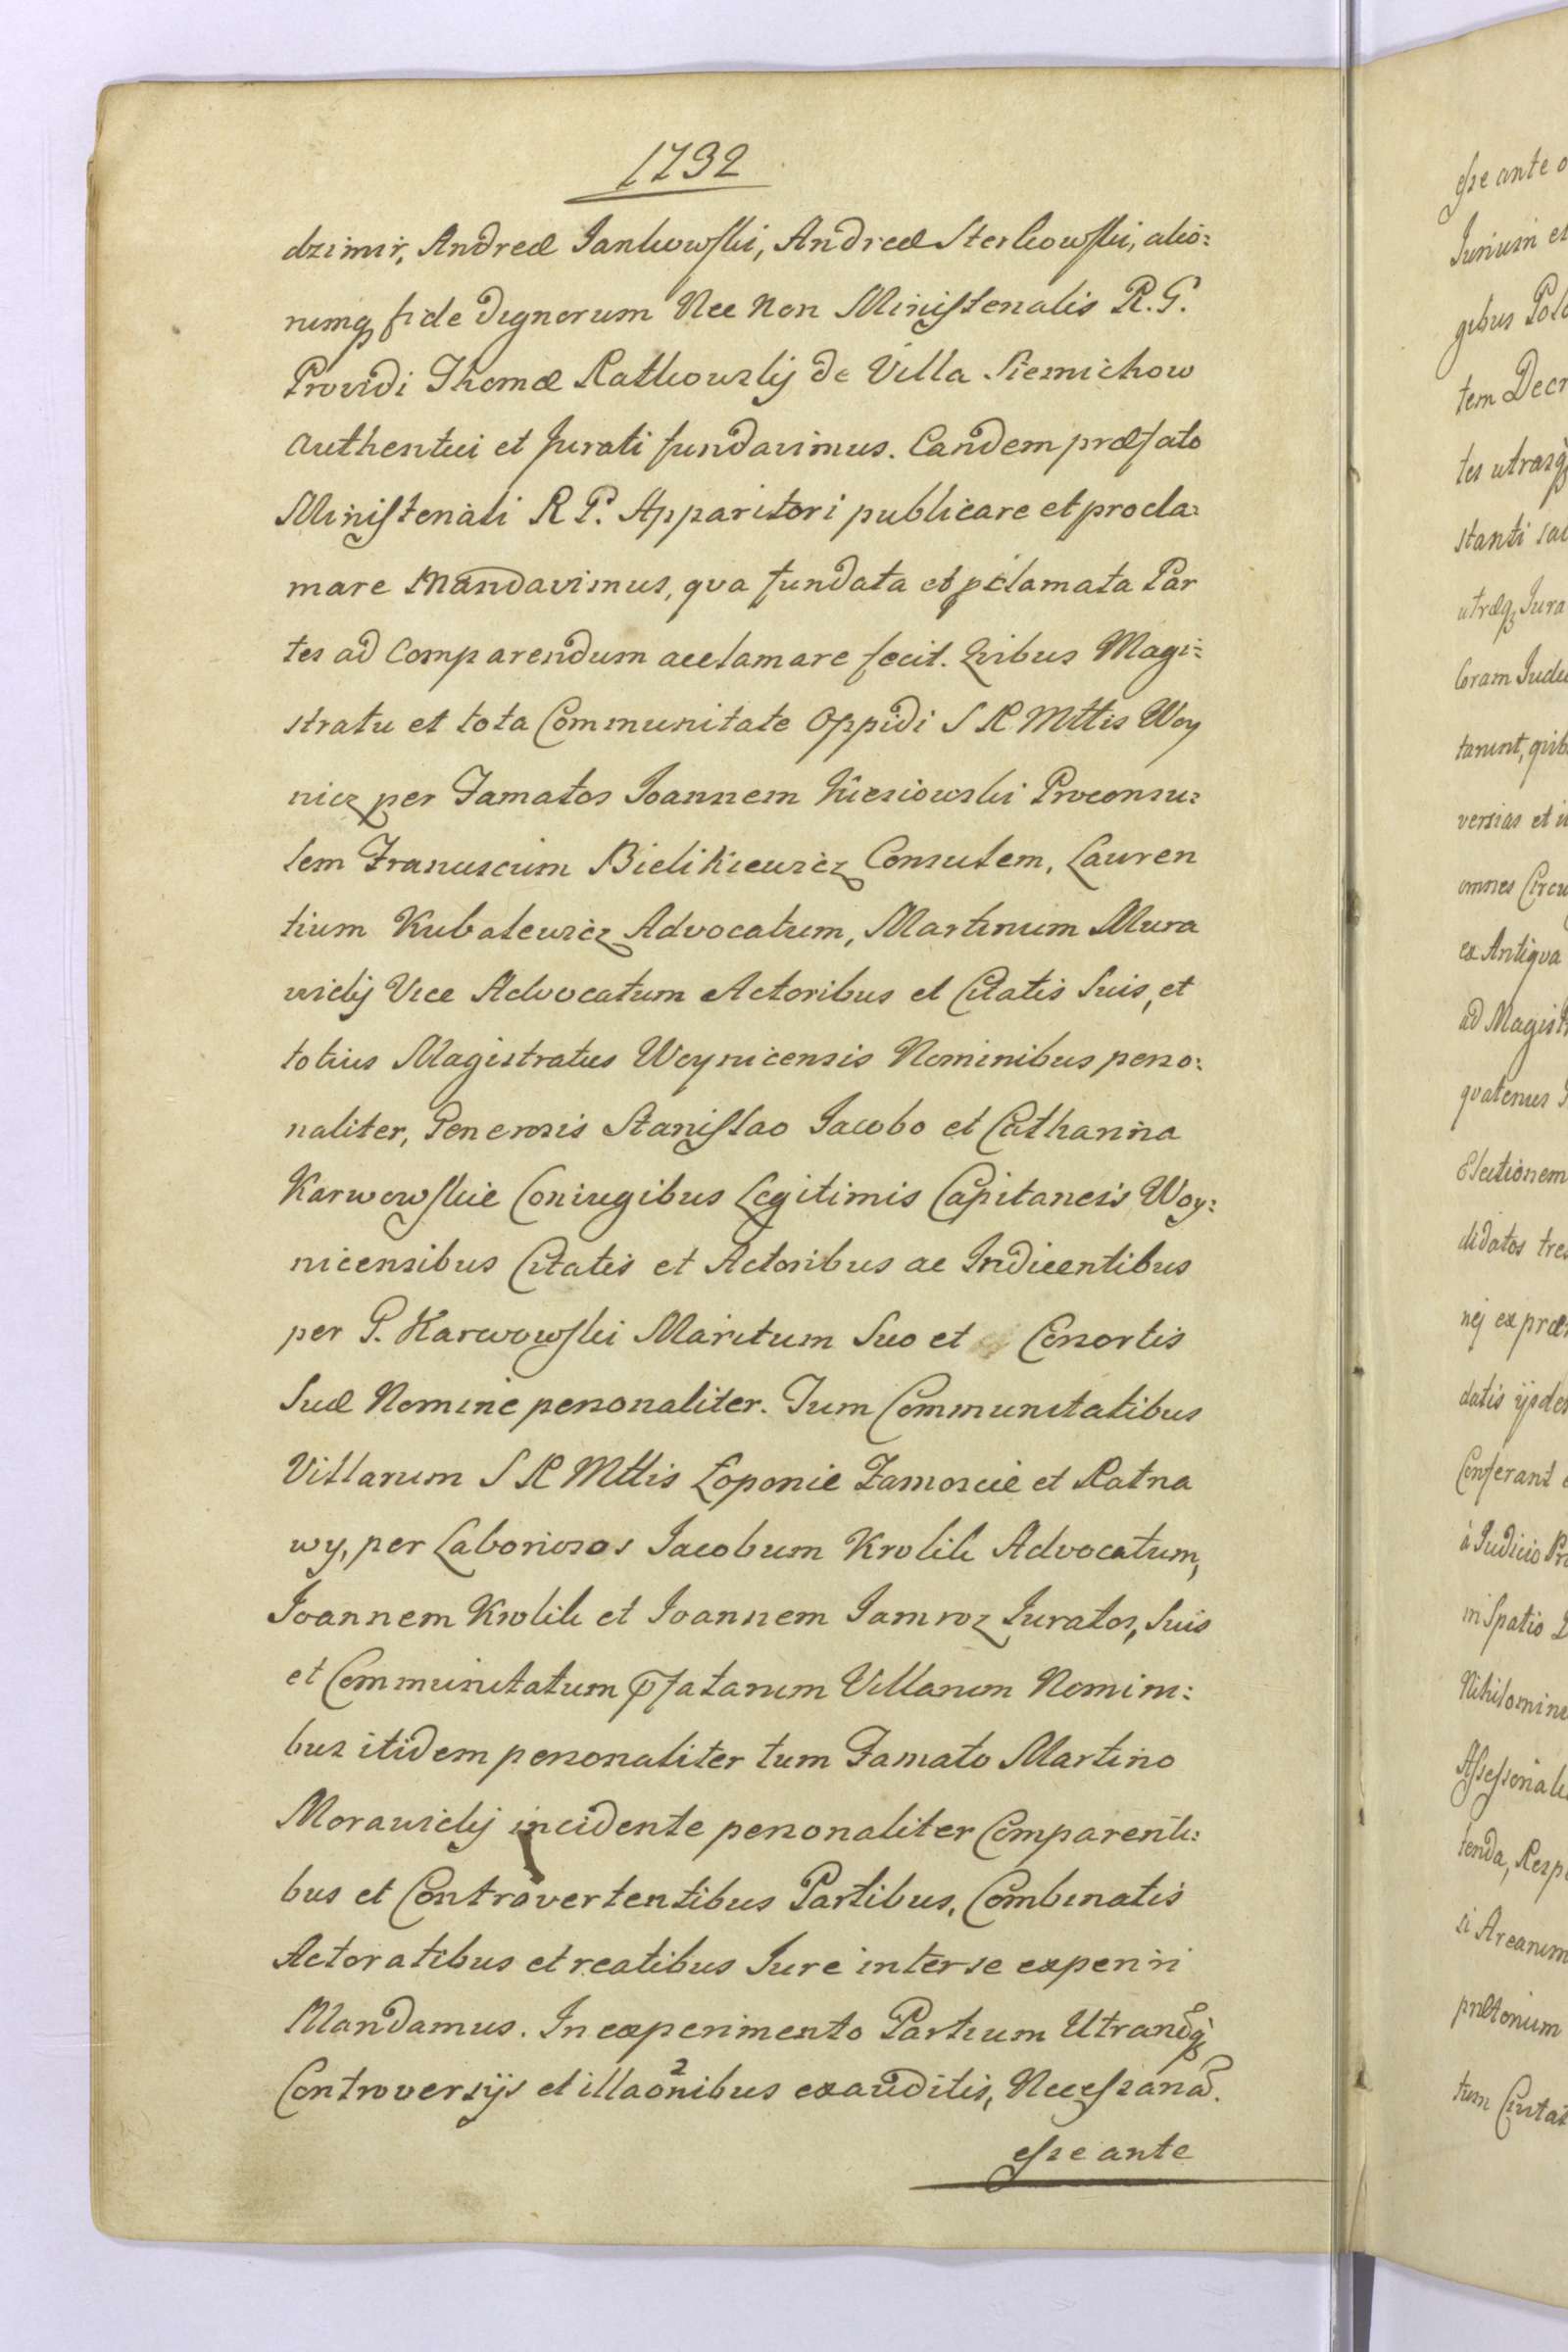 1792
dzimir, Andreæ Jankowski, Andreæ Sterkowski, alio:
rumq fide Dignorum Nec Non Ministerialis R. G.
Providi Thomæ Ratkowski de Villa Siemichow
authentici et Jurati fundavimus. Eandem præfato
Ministeriali R G. Apparitori publicare et procla:
mare Mandavimus, qva fundata et pclamata Par
tes ad Comparendum acclamare fecit. Qvibus Magi:
stratu et tota Communitate Oppidi S R Mttis Woy
nicz per Famatos Joannem Kiesiowski Proconsu:
lem Franciscum Bielikiewicz Consulem, Lauren
tium Kubalewicz Advocatum, Martinum Mura
wicki Vice Advocatum Actoribus et Citatis Suis, et
totius Magistratus Woynicensis Nominibus perso:
naliter, Generosis Stanislao Jacobo et Catharina
Karwowskie Coniugibus Legitimis Capitaneis Woy:
nicensibus Citatis et Actoribus ac Indicentibus
per G. Karwowski Maritum Suo et Consortis
Suæ Nomine personaliter. Tum Communitatibus
Villarum S R Mttis Łoponie Zamoscie et Ratna
wy, per Laboriosos Jacobum Krolik Advocatum,
Joannem Krolik et Joannem Jamroz Juratos, Suis
et Communitatum pfatarum Villarum Nomini:
bus itidem personaliter tum Famato Martino
Morawicki incidente personaliter Comparenti:
bus et Controvertentibus Partibus, Combinatis
Actoratibus et reatibus Jure inter se experiri
Mandamus. In experimento Partium Utrarq
Controversijs et illaonibus exauditis, Necessaria.
esse ante
esse ante
Jurium et
gibus Pol
tem Decr
tes utrasq
stanti
utræq Jura
Coram Judi
tarunt, qvib
versias et
omnes Circu
ex Antiqva
ad Magist
qvatenus
Electionem
didatos tres
nij ex præ
datis ijsdem
Conferant
à Judicio
in Spatio
Nihilomin
Assessoriali
tenda, Resp
si Arcanum
prætorium
tum Civitat